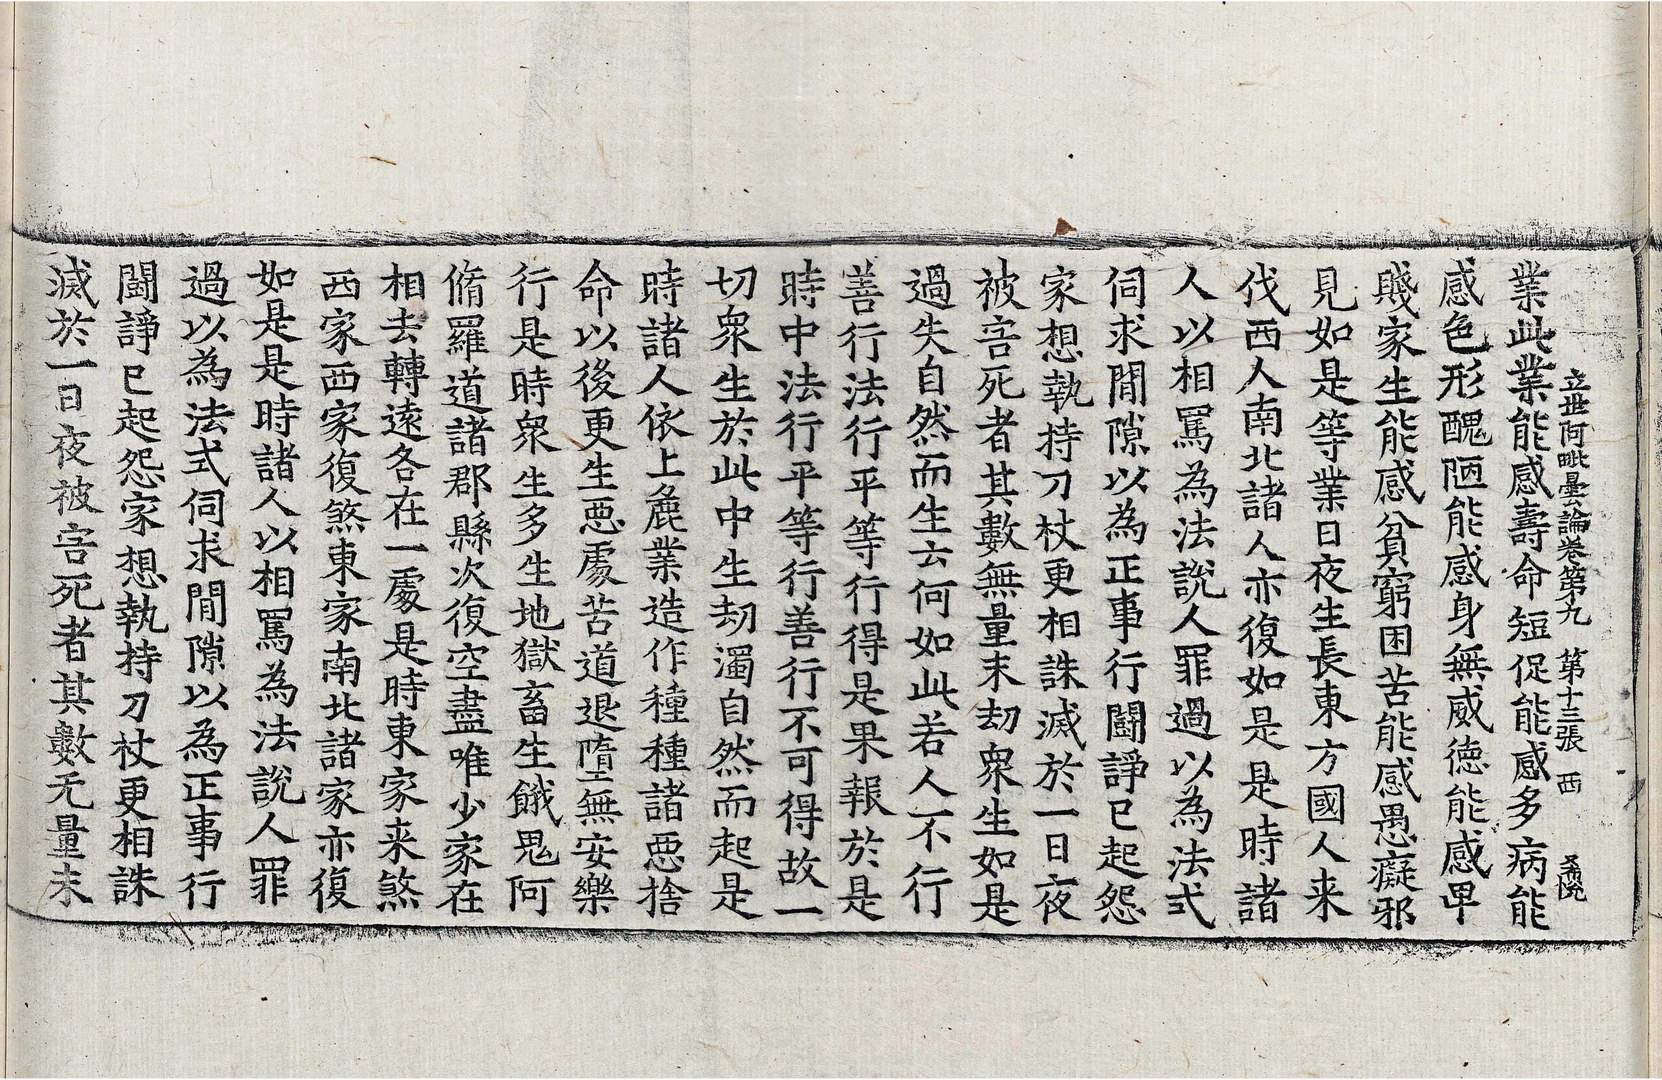 立世阿毗曇論卷第九 第十三張 西
業此業能感壽命短促能感多病能
感色形醜陋能感身無威德能感卑
賤家生能感貧窮困苦能感愚癡邪
見如是等業日夜生長東方國人来
伐西人南北諸人亦復如是是時諸
人以相罵為法說人罪過以為法式
伺求間隙以為正事行鬪諍已起怨
家想執持刀杖更相誅滅於一日夜
被害死者其數無量末劫眾生如是
過失自然而生云何如此若人不行
善行法行平等行得是果報於是
時中法行平等行善行不可得故一
切眾生於此中生劫濁自然而起是
時諸人依上麁業造作種種諸惡捨
命以後更生惡處苦道退墮無安樂
行是時眾生多生地獄畜生餓鬼阿
脩羅道諸郡縣次復空盡唯少家在
相去轉遠各在一處是時東家来煞
西家西家復煞東家南北諸家亦復
如是是時諸人以相罵為法說人罪
過以為法式伺求間隙以為正事行
鬪諍已起怨家想執持刀杖更相誅
滅於一日夜被害死者其數无量末